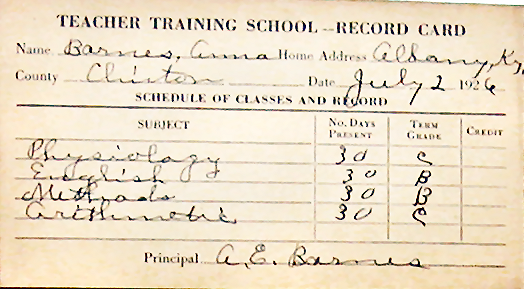 TEACHER TRAINING SCHOOL--RECORD CARD
Name Barnes, Anna Home Address Albany, Ky,
County Clinton Date July 2 1926
SCHEDULE OF CLASSES AND RECORD
SUBJECT No. Days Present Term Grade Credit
Physiology 30 C
English 30 B
Methods 30 B
Arithmetic 30 C
Principal A. E. Barnes